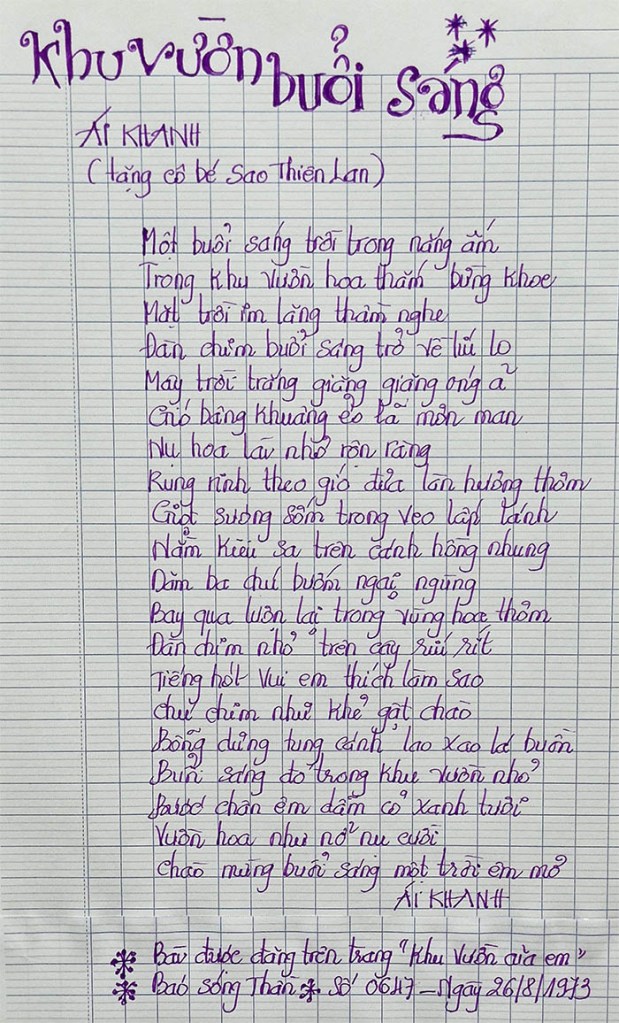 Khu vườn buổi sáng
ÁI KHANH
(tặng cô bé Sao Thiên Lan)
Một buổi sáng trời trong nắng ấm
Trong khu vườn hoa thắm bừng khoe
Mặt trời im lặng thầm nghe
Đàn chim buổi sáng trở về líu lo
Mây trời trắng giăng giăng óng ả
Gió bâng khuâng ẻo lả mơn man
Nụ hoa lài nhỏ rộn ràng
Rung rinh theo gió đưa làn hương thơm
Giọt sương sớm trong veo lấp lánh
Nằm kiêu sa trên cánh hồng nhung
Dăm ba chú bướm ngại ngùng
Bay qua lượn lại trong vùng hoa thơm
Đàn chim nhỏ trên cây ríu rít
Tiếng hót vui em thích làm sao
Chú chim như khẽ gật chào
Bỗng dưng tung cánh lao xao lá buồn
Buổi sáng đó trong khu vườn nhỏ
Bước chân em dẫm cỏ xanh tươi
Vườn hoa như nở nụ cười
Chào mừng buổi sáng một trời êm mơ
ÁI KHANH
Bài được đăng trên trang "Khu vườn của em"
Báo Sóng Thần * Số 0647 - Ngày 26/8/1973